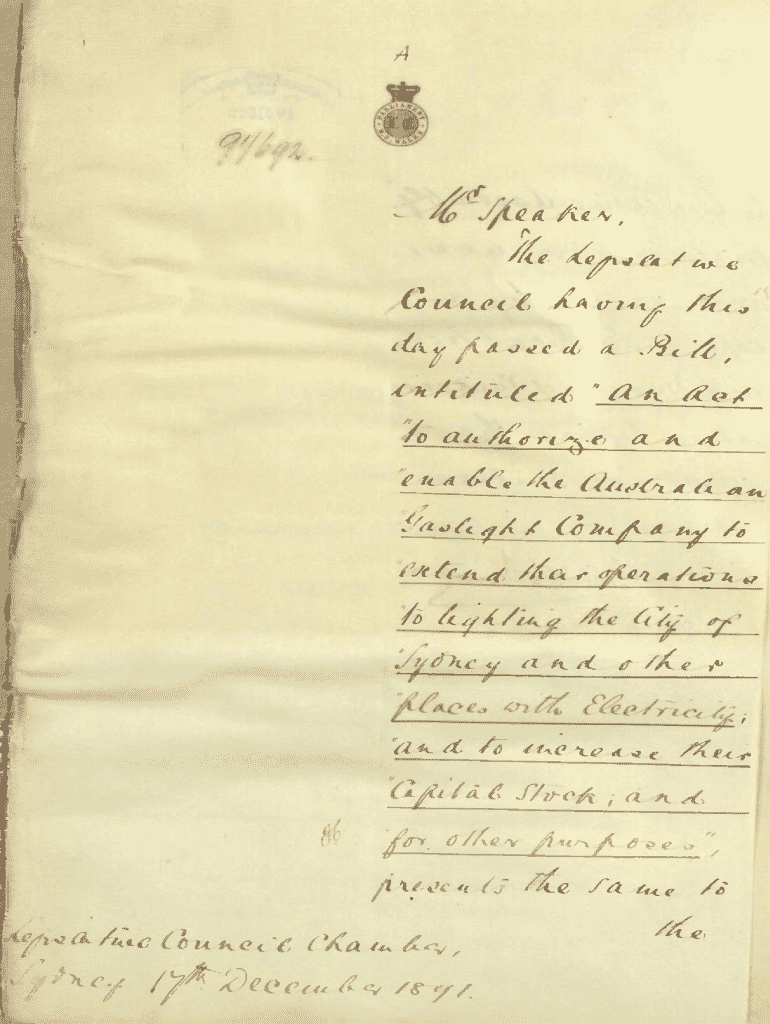 A
PARLIAMENT
N.S. WALES
91/692.
Mr Speaker,
The Legislative
Council having this
day passed a Bill,
intituled "An Act
"to authorize and
"enable the Australian
"Gaslight Company to
"extend their operations
"to lighting the City of
"Sydney and other
"places with Electricity;
"and to increase their
"Capital Stock; and
"for other purposes",
presents the same to
the
Legislative Council Chamber,
Sydney 17th December 1891.